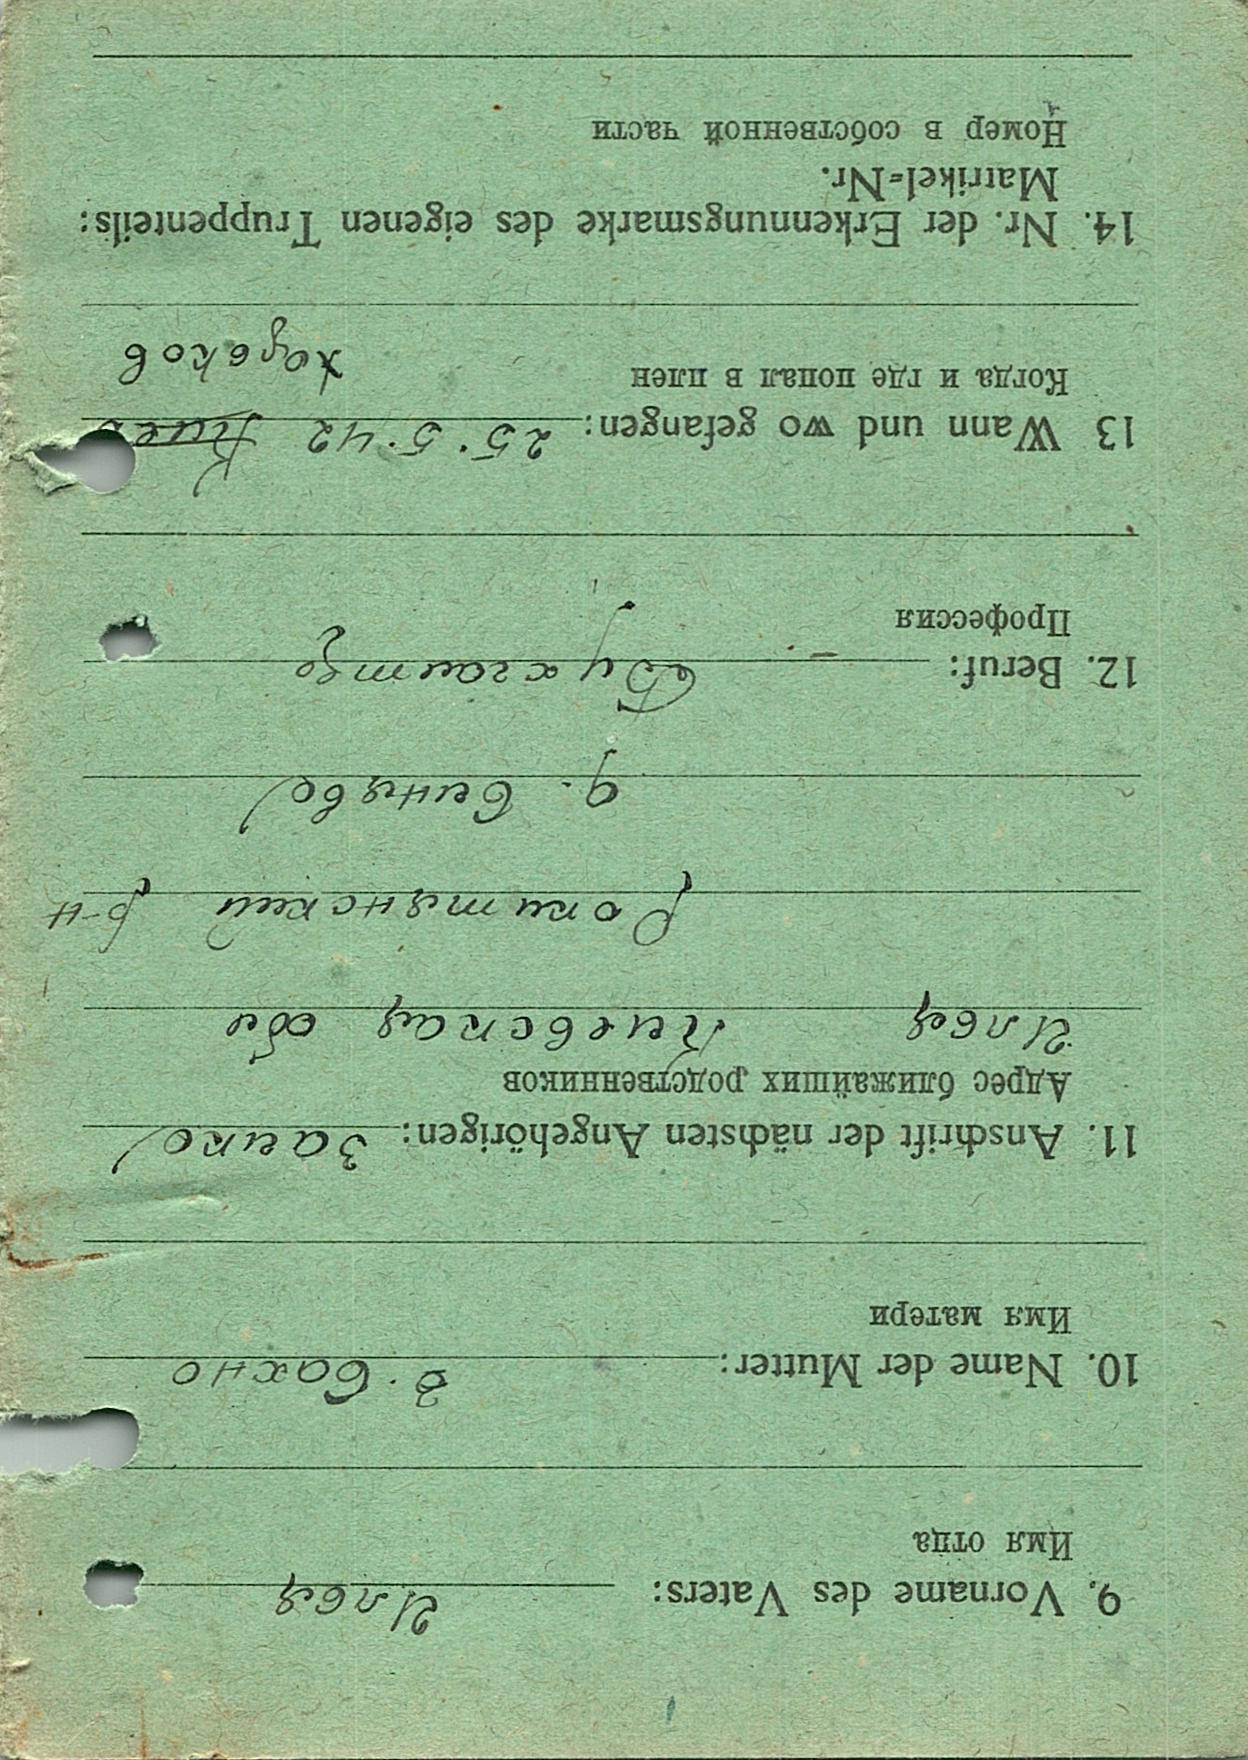 9. Vorname des Vaters: Илья
Имя отца
10. Name der Mutter: З. Бахно
Имя матери
11. Anschrift der nächsten Angehörigen: Заико
Адрес ближайших родственников
Илья Киевская обл
Рокитянский р-н
д. Синяво
12. Beruf: Бухгалтер
Профессия
13 Wann und wo gefangen: 25.5.42 Киев
Когда и где попал в плен
Харьков
14. Nr. der Erkennungsmarke des eigenen Truppenteils:
Matrikel=Nr.
Номер в собственной части